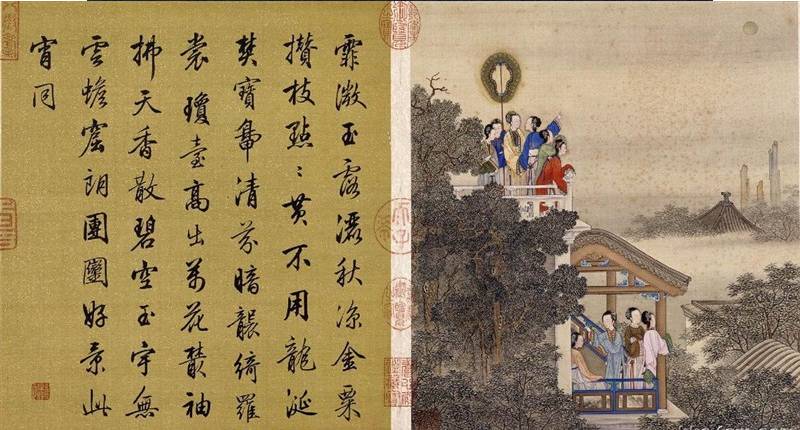 霏微玉露灑秋涼金粟
攢枝點〻黃不用龍涎
焚寶鼎清芬暗襲綺羅
裳瓊臺高出萬花叢袖
拂天香散碧空玉宇無
雲蟾窟朗團圞好景此
宵同